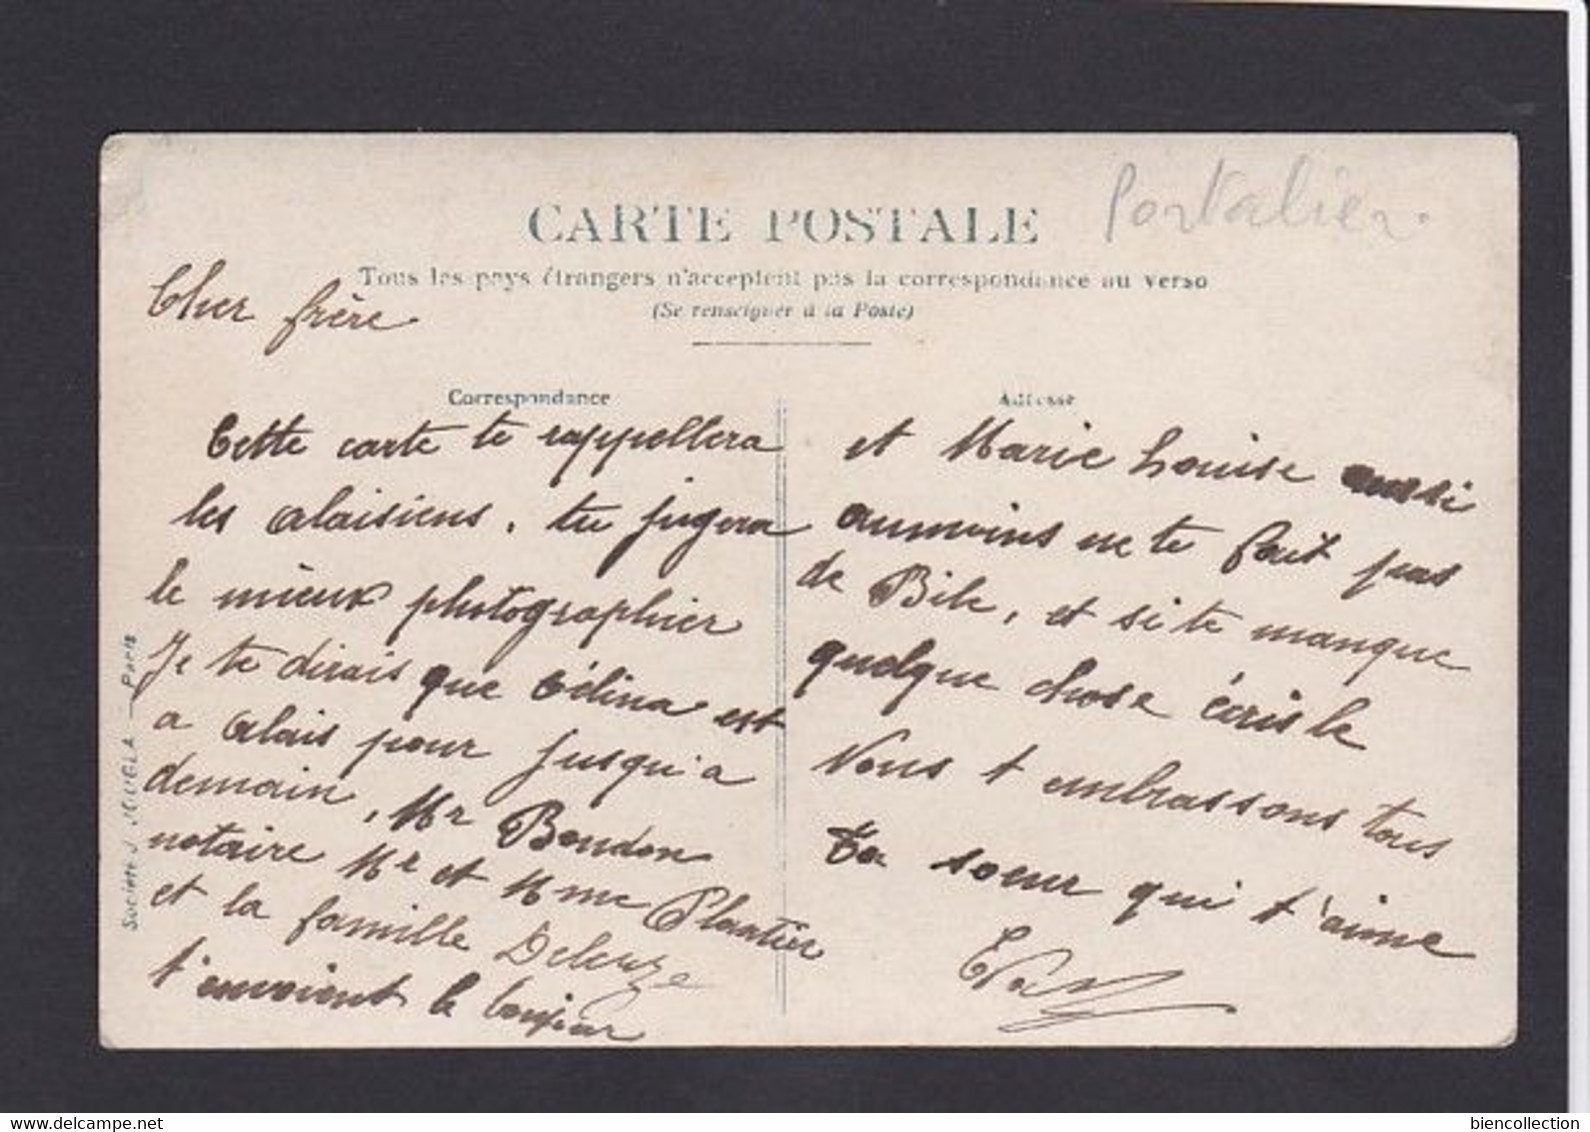 CARTE POSTALE
Portalier.
Tous les pays étrangers n'acceptent pas la correspondance au verso
(Se renseigner à la Poste)
Cher frère
Correspondance
Cette carte te rappellera
les alaisiens, tu jugera
le mieux photographier
Je te dirais que Célina est
a alais pour jusqu'a
demain, Mr Boudon
notaire Mr et Mme Plantier
et la famille Deleuze
t'envoient le bonjour
Adresse
et Marie Louise aussi
aumoins ne te fait pas
de Bile, et si te manque
quelque chose écris le
Nous t embrassons tous
Ta soeur qui t'aime
Eva
Société J. JOUGLA - Paris
delcampe.net
biencollection